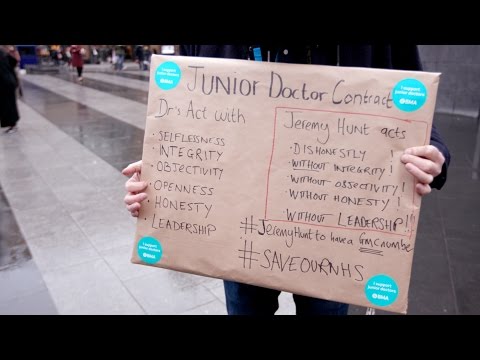 JUNIOR DOCTOR CONTRACT
Dr's Act with
· SELFLESSNESS
· INTEGRITY
· OBJECTIVITY
· OPENNESS
· HONESTY
· LEADERSHIP
Jeremy Hunt acts
· DISHONESTLY !
· WITHOUT INTEGRITY !
· WITHOUT OBJECTIVITY !
· WITHOUT HONESTY !
· WITHOUT LEADERSHIP !!
#JeremyHunt to have a GMC numbe
#SAVEOURNHS
I support
junior doctors
BMA
I support
junior doctors
BMA
I support
junior doctors
BMA
I support
junior doctors
BMA